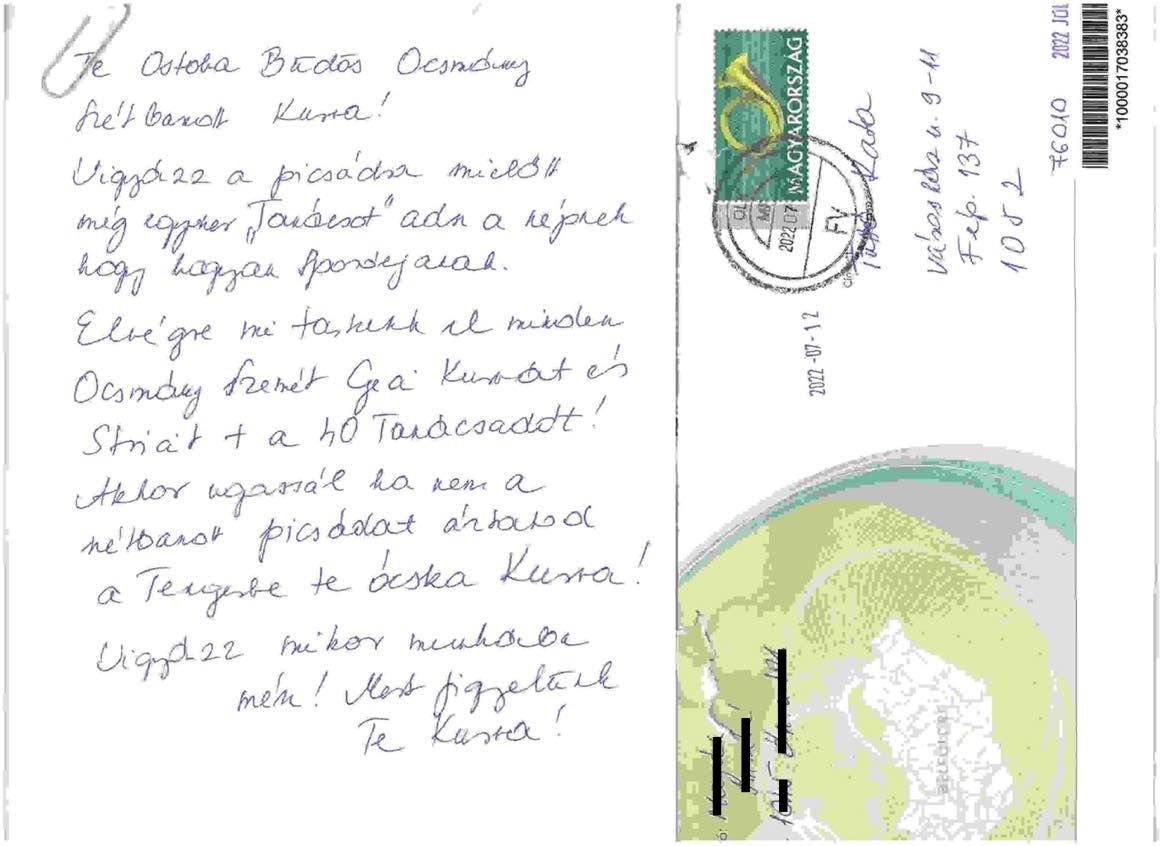 Te Ostoba Büdös Ocsmány
Szétbaxxxx Kurva!
Vigyázz a picsádra mielőtt
még egyszer „Tanácsot" adsz a népnek
hogy hogyan spóroljanak.
Elvégre mi tartunk el minden
Ocsmány Szemét Kurvát és
+ a 40 Tanácsadót!
Akkor ugassál ha nem a
picsádat áztatod
a Tengerbe te ócska Kurva!
Vigyázz mikor munkába
mész! Mert figyelünk
Te Kurva!
MAGYARORSZÁG
2022 07
FV
Kata
Városház u. 9-11
Fép. 137
1052
2022-07-12
76010
2022 JÚL
*1000017038383*